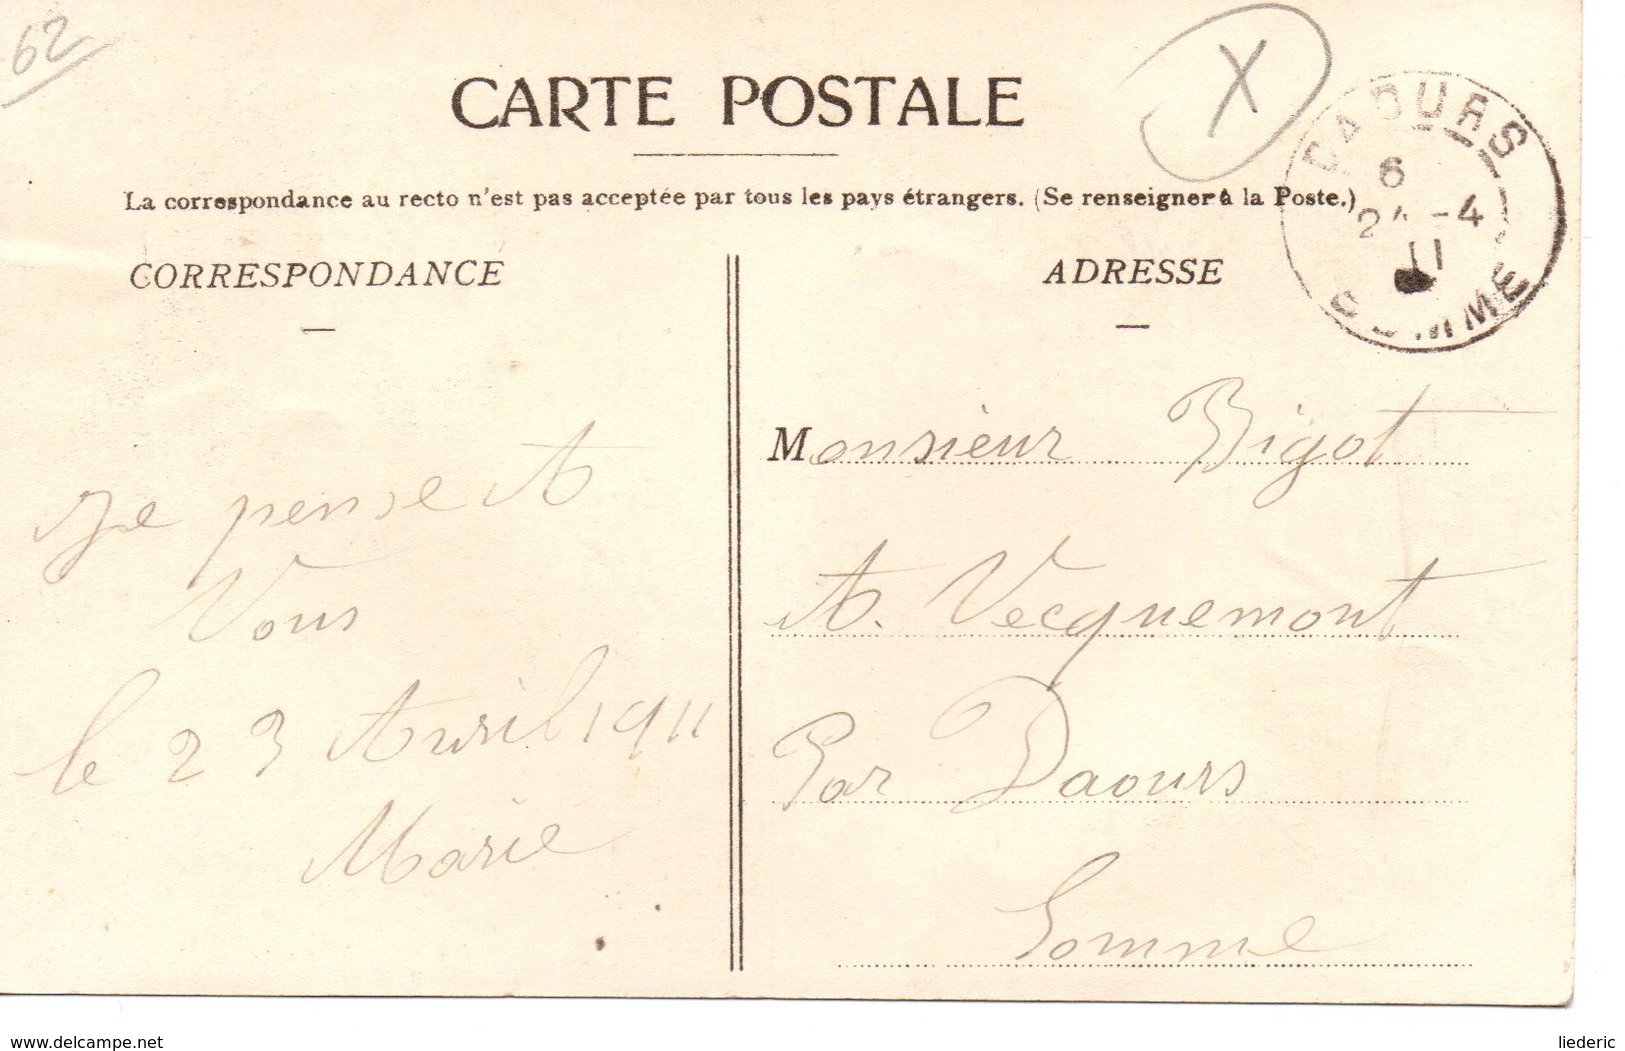 62
X
CARTE POSTALE
DAOURS
6
24 -4
11
SOMME
La correspondance au recto n'est pas acceptée par tous les pays étrangers. (Se renseigner à la Poste.)
CORRESPONDANCE
Je pense A
Vous
le 23 Avril 1911
Marie
ADRESSE
Monsieur Bigot
A. Vecquemont
Par Daours
Somme
www.delcampe.net
liederic